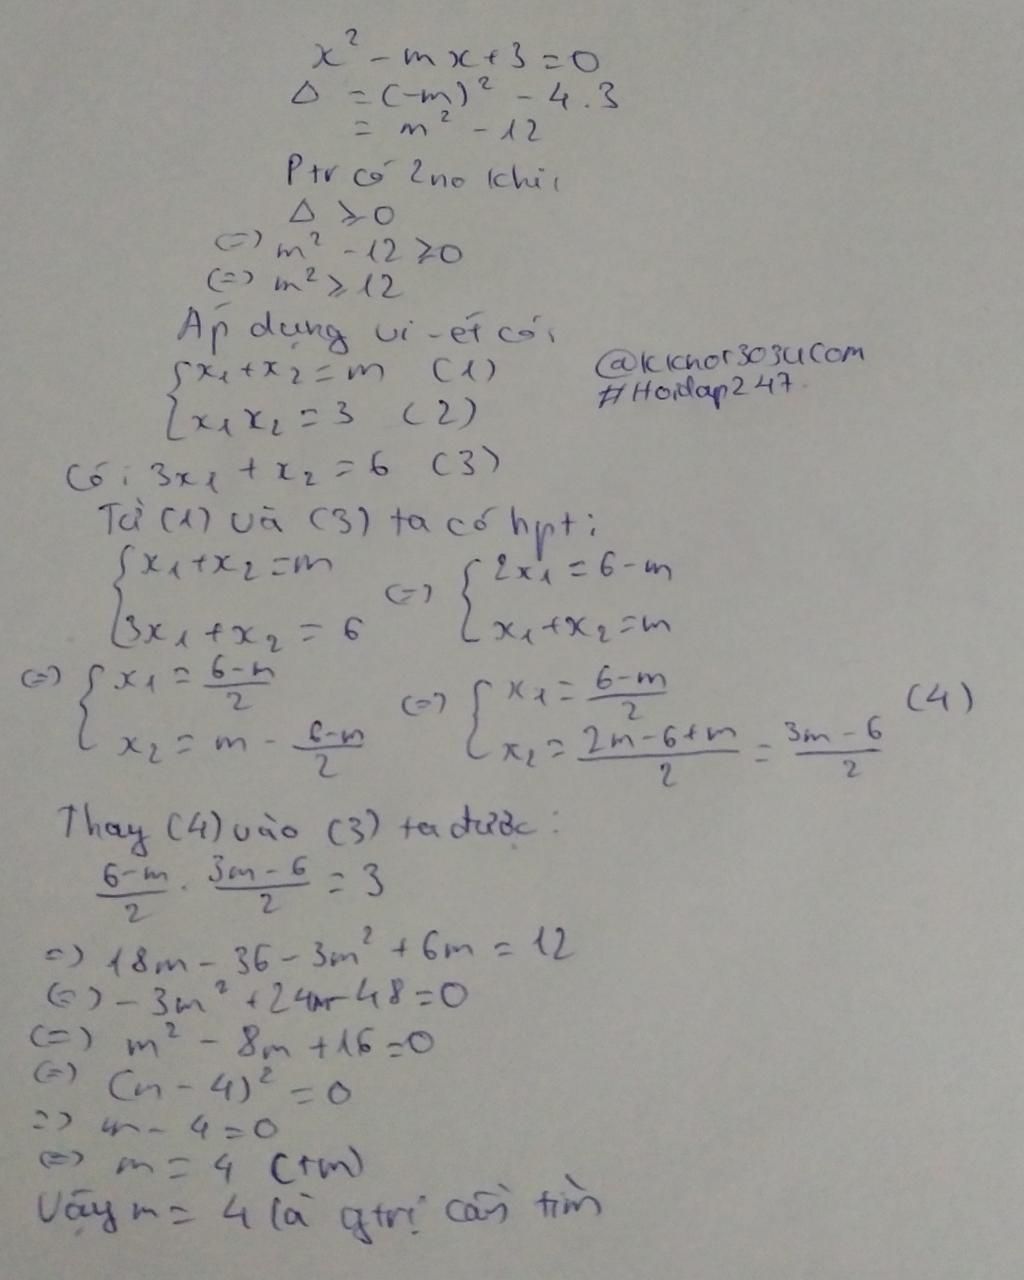 x² - mx + 3 = 0
Δ = (-m)² - 4.3
= m² - 12
Ptr có 2 no khi:
Δ ≥ 0
(=) m² - 12 ≥ 0
(=) m² ≥ 12
Áp dụng vi-ét có:
{ x₁ + x₂ = m (1)
{ x₁x₂ = 3 (2)
@kknor3034com
#Hoidap247.
Có: 3x₁ + x₂ = 6 (3)
Từ (1) và (3) ta có hpt:
{ x₁ + x₂ = m (=) { 2x₁ = 6 - m
{ 3x₁ + x₂ = 6 { x₁ + x₂ = m
(=) { x₁ = (6-m)/2 (=) { x₁ = (6-m)/2 (4)
{ x₂ = m - (6-m)/2 { x₂ = (2m-6+m)/2 = (3m-6)/2
Thay (4) vào (3) ta được:
(6-m)/2 . (3m-6)/2 = 3
=) 18m - 36 - 3m² + 6m = 12
(=) -3m² + 24m - 48 = 0
(=) m² - 8m + 16 = 0
(=) (m - 4)² = 0
=) m - 4 = 0
(=) m = 4 (tm)
Vậy m = 4 là gtrị cần tìm